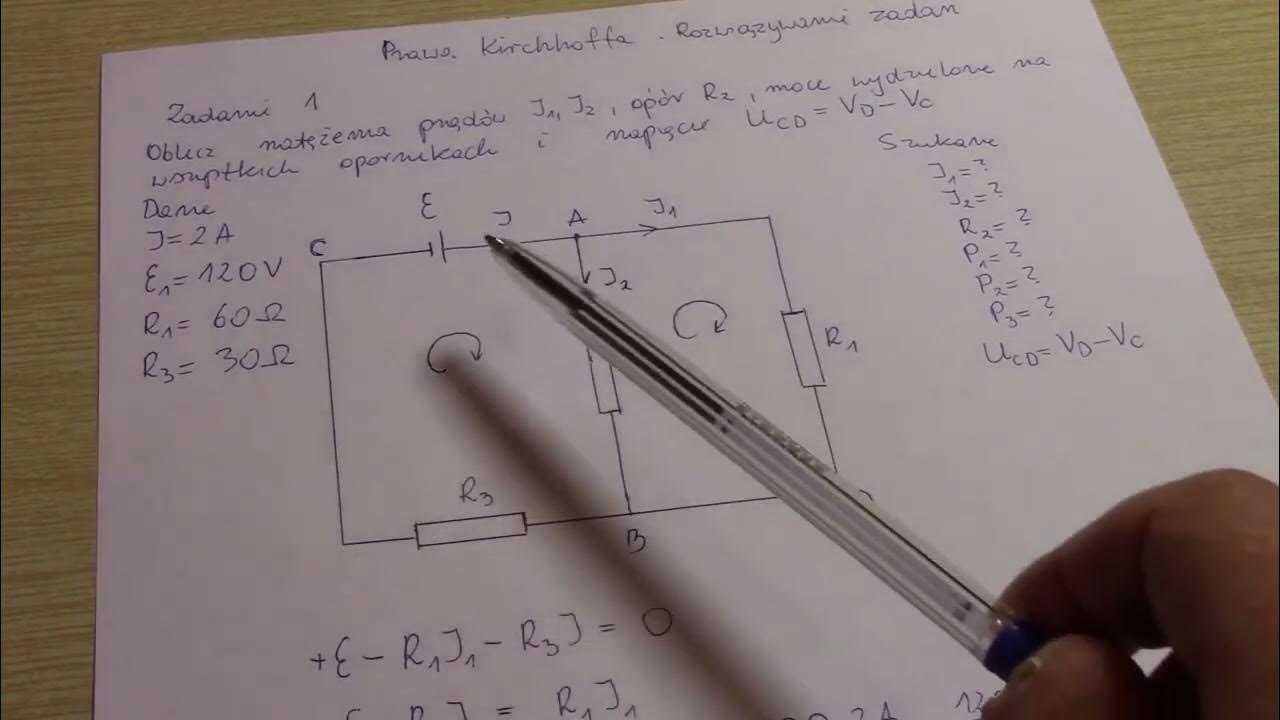 Prawa Kirchhoffa. Rozwiązywanie zadań
Zadanie 1
Oblicz natężenia prądów I₁, I₂, opór R₂, moce wydzielone na
wszystkich opornikach i napięcie U_CD = V_D − V_C
Dane
I = 2A
ℰ₁ = 120V
R₁ = 60Ω
R₃ = 30Ω
Szukane
I₁ = ?
I₂ = ?
R₂ = ?
P₁ = ?
P₂ = ?
P₃ = ?
U_CD = V_D − V_C
ℰ
I
A
I₁
C
I₂
R₁
R₃
B
+ℰ − R₁I₁ − R₃I = 0
= R₁I₁